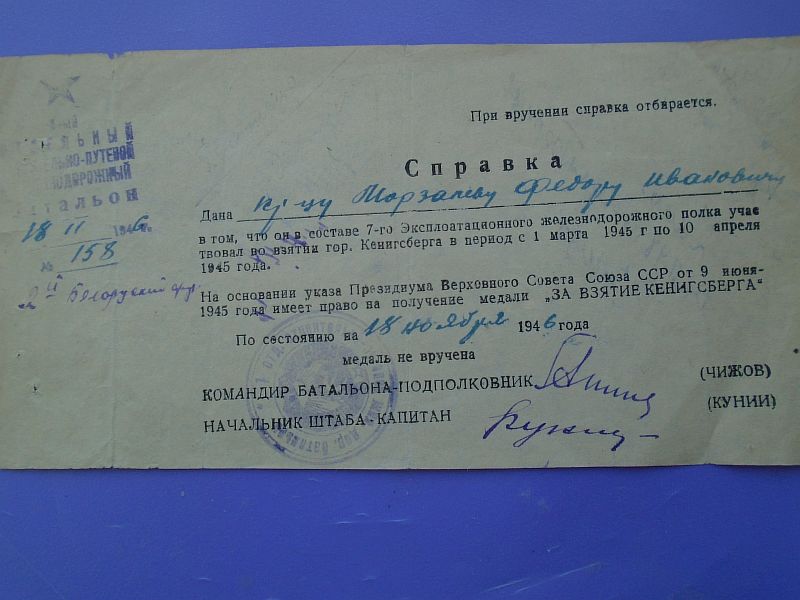 При вручении справка отбирается.
Справка
Дана кр-цу Морзалеву Федору Ивановичу
в том, что он в составе 7-го Эксплоатационного железнодорожного полка учас
твовал во взятии гор. Кенигсберга в период с 1 марта 1945 г по 10 апреля
1945 года.
На основании указа Президиума Верховного Совета Союза ССР от 9 июня-
1945 года имеет право на получение медали „ЗА ВЗЯТИЕ КЕНИГСБЕРГА“
По состоянию на 18 ноября 1946 года
медаль не вручена
КОМАНДИР БАТАЛЬОНА-ПОДПОЛКОВНИК (ЧИЖОВ)
НАЧАЛЬНИК ШТАБА-КАПИТАН (КУНИИ)
ПУТЕВОЙ
18 11 1946 г.
№ 158
2й Белоруский фр.